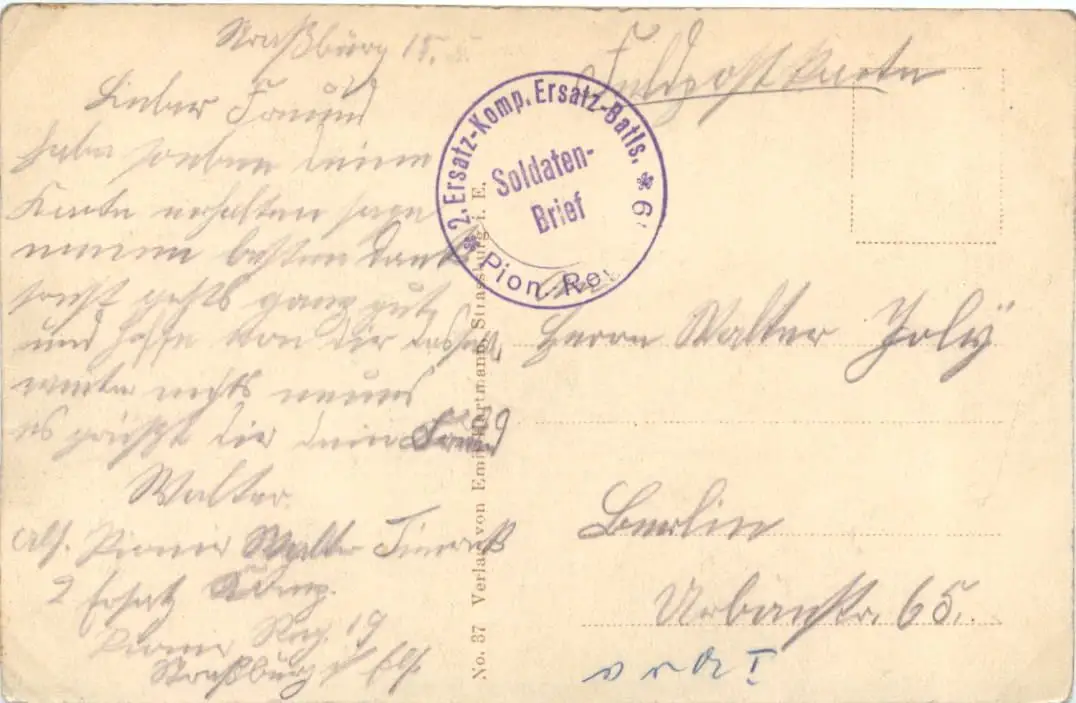 Straßburg 15.
Feldpostkarte
Lieber Freund
habe soeben deine
Karte erhalten sage
meinen besten Dank
sonst gehts ganz gut
und hoffe von dir dasselbe
weiter nichts neues
es grüßt dir dein Freund
Walter.
Abs. Pionier Walter
2 Ersatz Komp.
Pionier Reg. 19
Straßburg i/ Els.
2. Ersatz-Komp. Ersatz-Batls.
Soldaten-
Brief
Pion.-Re 9
No. 37 Verlag von Emil Hartmann, Strassburg i. E.
Herrn Walter Joly
Berlin
Urbanstr. 65.